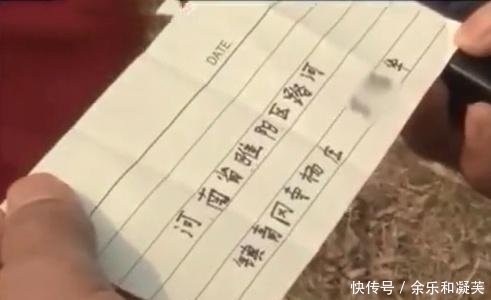 DATE
河南省睢阳区路河
镇青冈寺杨庄 华
快传号 / 余乐和凝芙